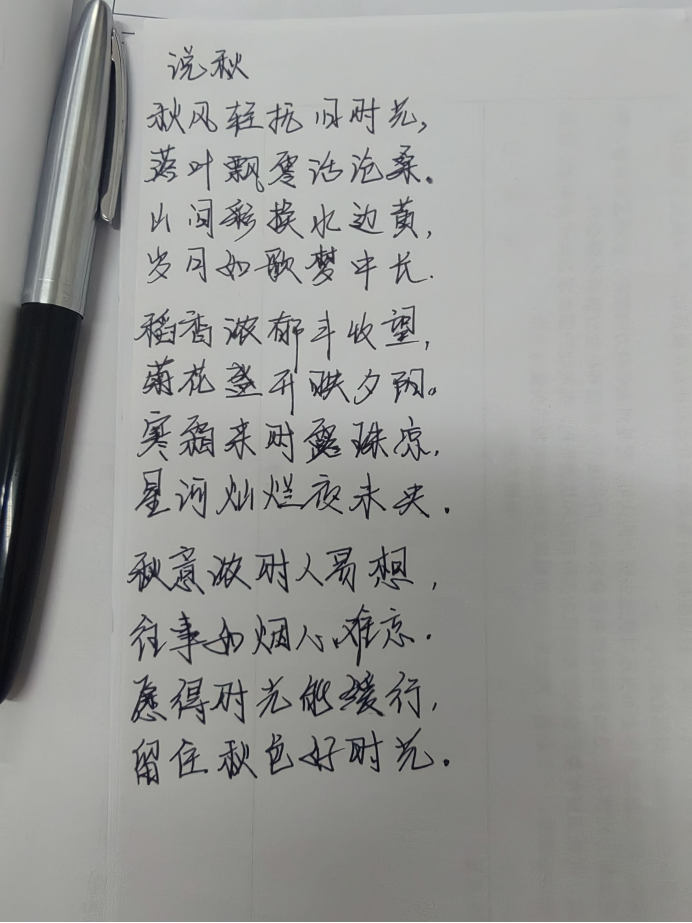 说秋
秋风轻抚旧时光，
落叶飘零话沧桑。
山间彩换水边黄，
岁月如歌梦中长.
稻香浓郁斗收望，
菊花盏开映夕阳。
寒霜来时露珠凉，
星河灿烂夜未央.
秋意浓时人易想，
往事如烟心难忘.
愿得时光能缓行，
留住秋色好时光.